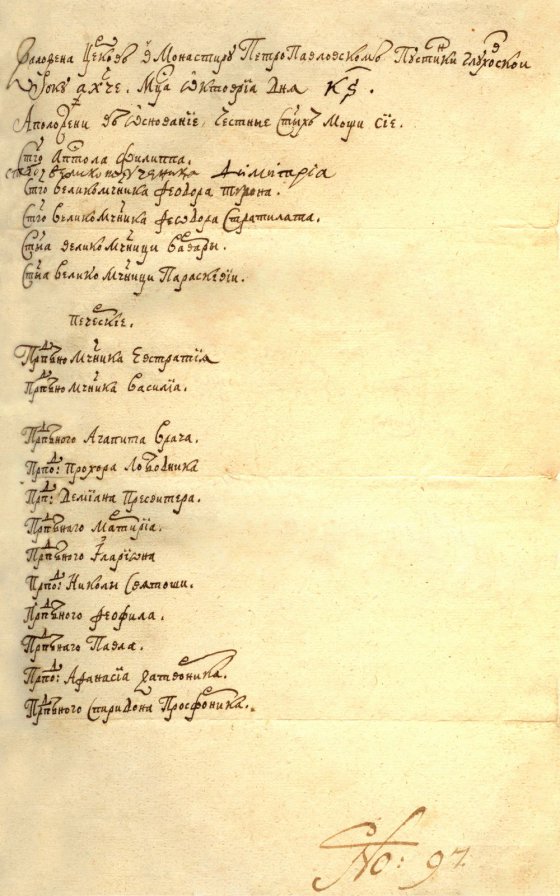 Заложена Церковъ в Монастиру ПетроПавловскомъ Пустинки Глуховской
Року ахче. Мца Октоврїа Дня Кѕ.
А положени въ Основаніе, Честные Стыхъ Мощи сїе.
Стго Аптола Филиппа.
стго великомученика Димитрїа
Стго великомчника Феодора Тирона.
Стго великомчника Феодора Стратилата.
Стыа великомчници Варвары.
Стыа великомчници Параскевїи.
печерскіе.
Прпдбномчника Евстратїа
Прпдбномчника Василїа.
Прпдбного Агапита врача.
Прпо: Прохора Лободника
Прп: Демїана Пресвитера.
Прпдбнаго Матфїа.
Прпдбного Іларїѡна
Прпо: Николы Святоши.
Прпдбного Феофила.
Прпдбнаго Павла.
Прпо: Афанасїа Затворника.
Прпдбного Спиридона Просфорника.
No: 97